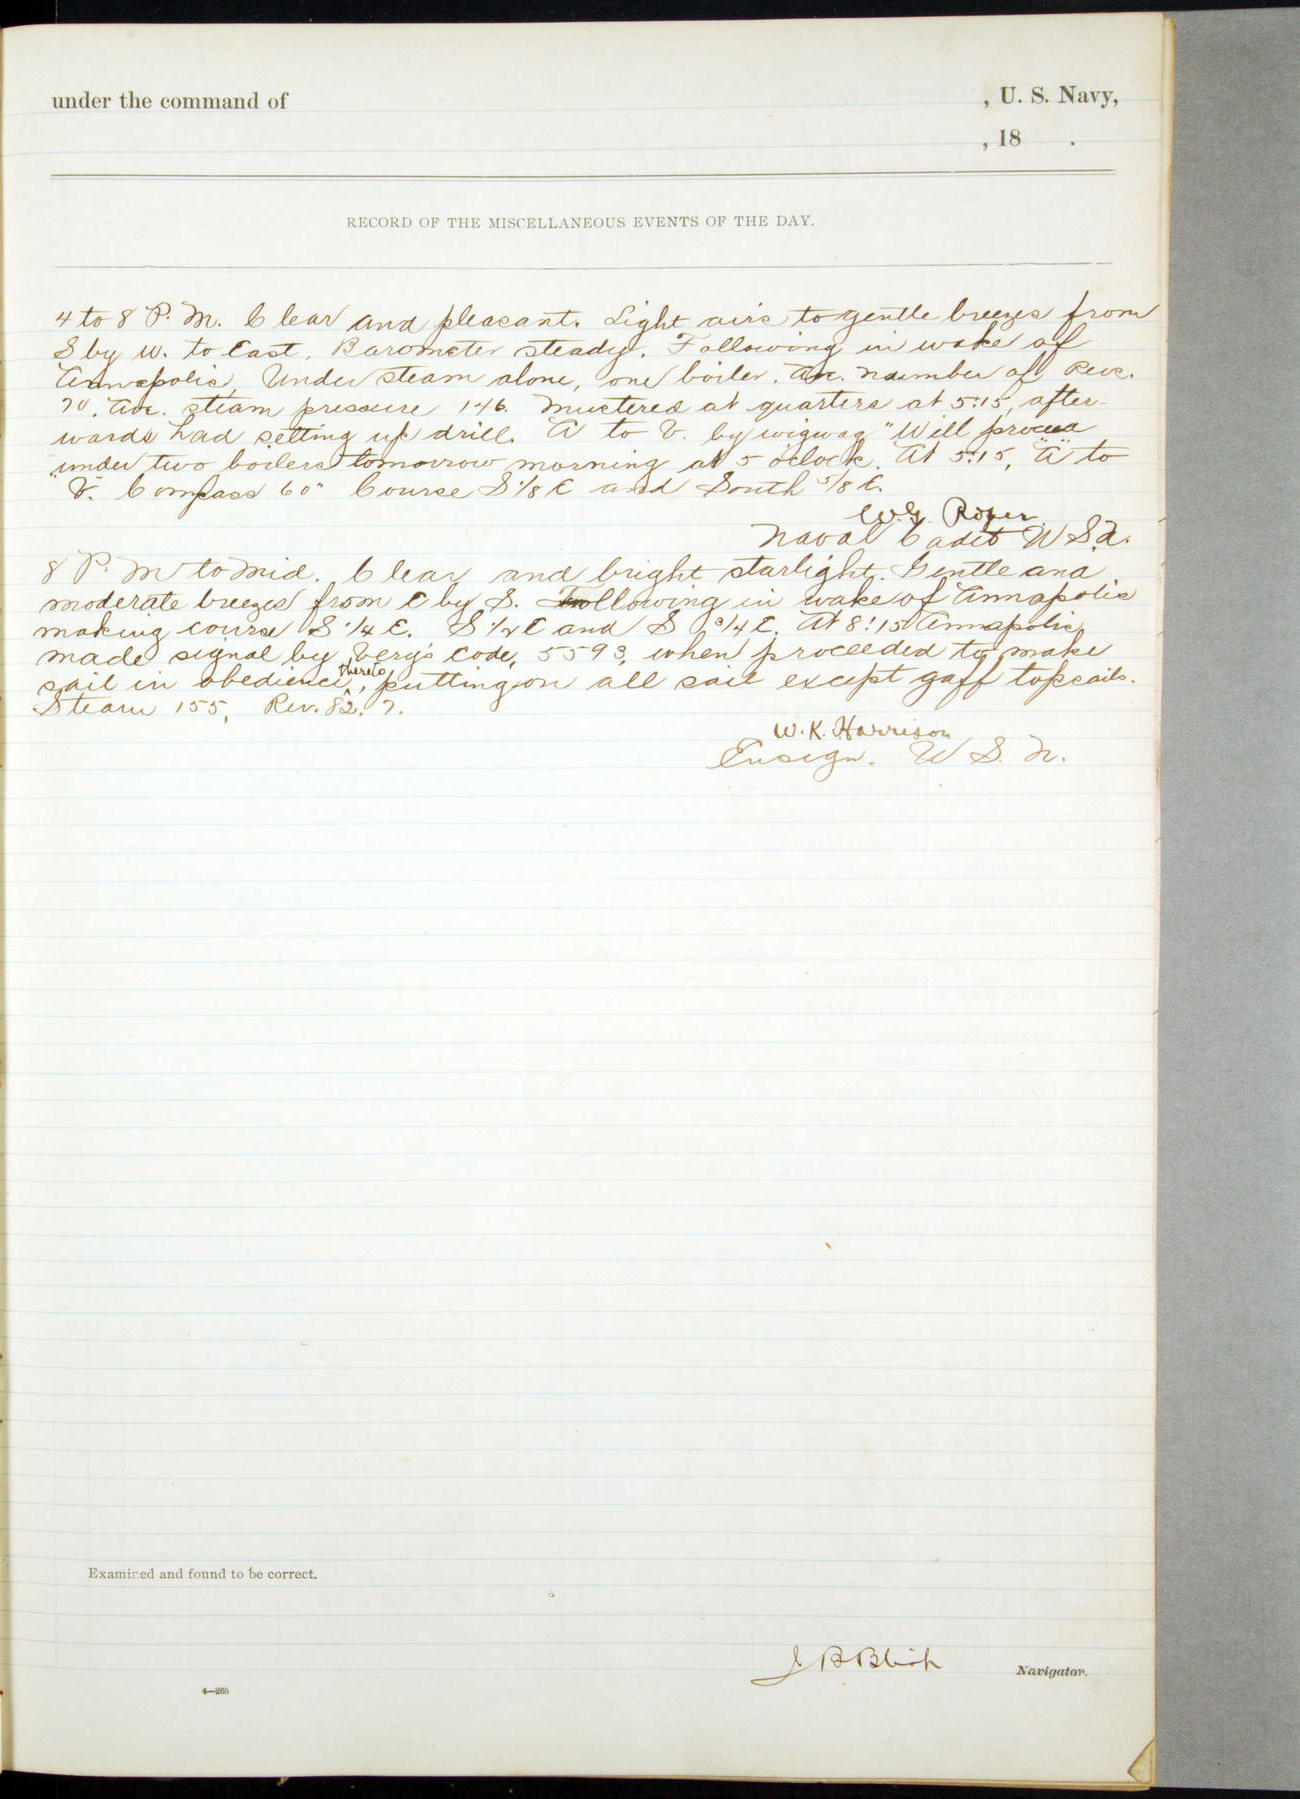 under the command of , U. S. Navy,
, 18 .
RECORD OF THE MISCELLANEOUS EVENTS OF THE DAY.
4 to 8 P. M. Clear and pleasant. Light airs to gentle breezes from
S by W. to East. Barometer steady. Following in wake of
Annapolis, Under steam alone, one boiler. Av. number of Revs.
70. Ave. steam pressure 146. Mustered at quarters at 5:15, after-
wards had setting up drill. A to V. by wigwag "Will proceed
under two boilers tomorrow morning at 5 o'clock. At 5:15, "A" to
"V." Compass 60" Course S 1/8 E and South 5/8 E.
W.G. Roper
Naval Cadet U.S.N.
8 P. M to Mid. Clear and bright starlight. Gentle and
moderate breezes from E by S. Following in wake of Annapolis
making course S 1/4 E. S 1/2 E and S 3/4 E. At 8:15 Annapolis
made signal by Very's Code, 5593, when proceeded to make
sail in obedience thereto, putting on all sail except gaff topsails.
Steam 155, Rev. 82.7.
W. K. Harrison
Ensign. U. S. N.
Examined and found to be correct.
J B Blish Navigator.
4—265